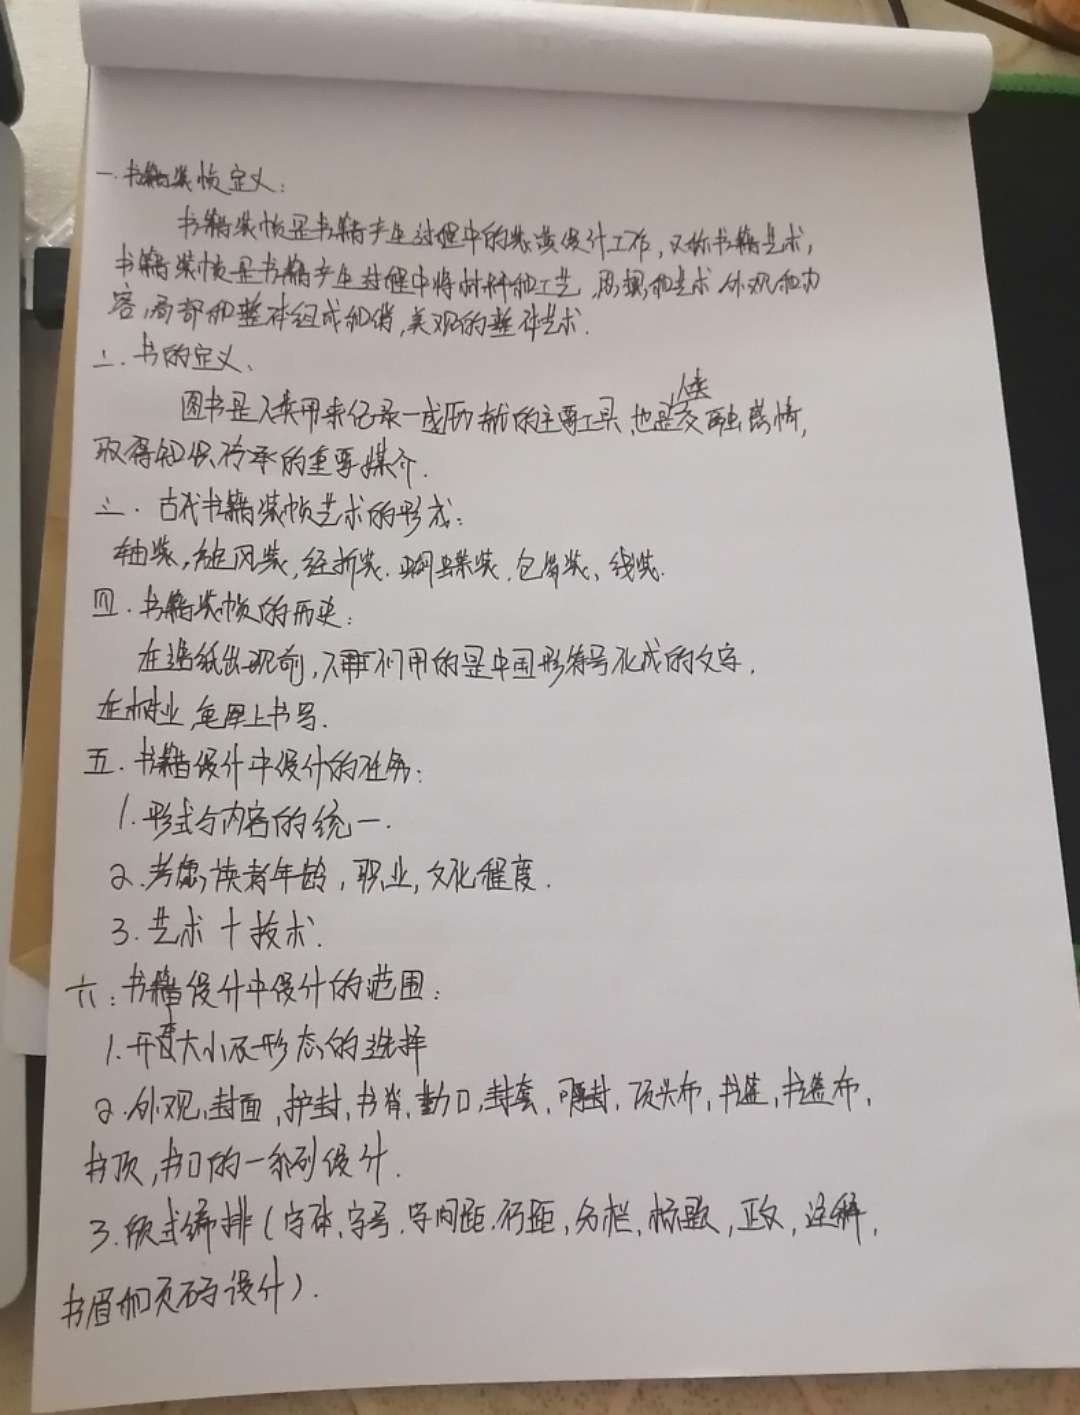 一.书籍装帧定义:
书籍装帧是书籍产生过程中的装潢设计工作,又称书籍艺术,
书籍装帧是书籍产生过程中将材料和工艺,思想和艺术,外观和内
容,局部和整体组成和谐,美观的整体艺术.
二.书的定义、
图书是人类用来记录一成历献的主要工具,也是人类交融感情,
取得知识传承的重要媒介.
三.古代书籍装帧艺术的形成:
轴装,旋风装,经折装.蝴蝶装.包背装、线装.
四.书籍装帧的历史:
在造纸出现前,人再利用的是中国形符号化成的文字.
在树业,龟甲上书写.
五.书籍设计中设计的任务:
1.形式与内容的统一.
2.考虑读者年龄,职业,文化程度.
3.艺术十技术.
六:书籍设计中设计的范围:
1.开本大小及形态的选择
2.外观,封面,护封,书脊,勒口,封套,腰封,顶头布,书签,书签布,
书顶,书口的一系列设计.
3.版式编排(字体,字号.字间距.行距,分栏,标题,正文,注释,
书眉和页码设计).